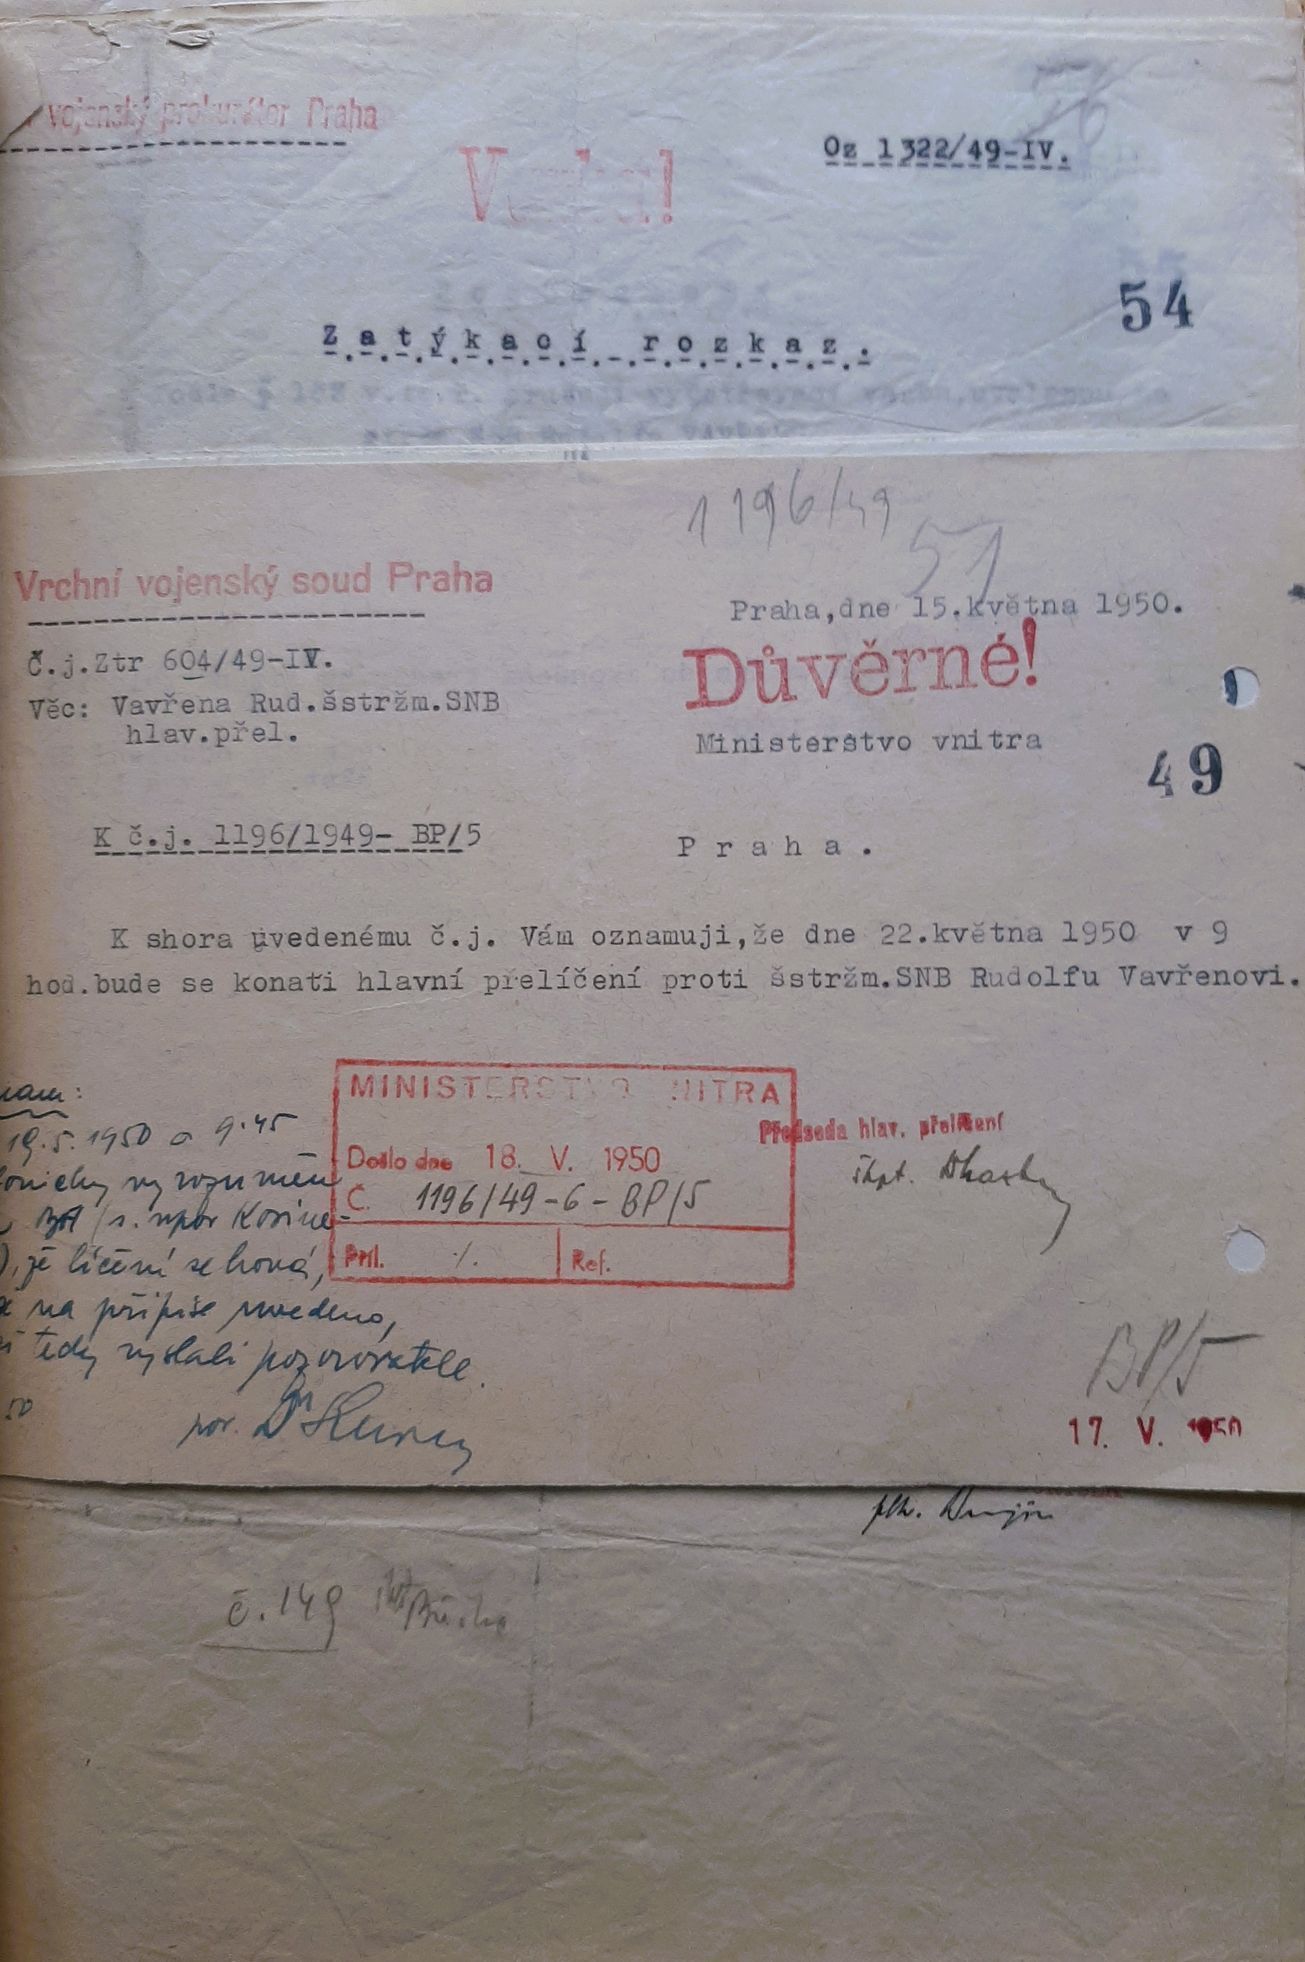 vojenský prokurátor Praha
Oz 1322/49-IV.
Vazba!
54
Zatýkací rozkaz.
1196/49
51
Vrchní vojenský soud Praha
Praha,dne 15.května 1950.
Č.j.Ztr 604/49-IV.
Důvěrné!
Věc: Vavřena Rud.šstržm.SNB
hlav.přel.
Ministerstvo vnitra
49
K č.j. 1196/1949- BP/5
Praha.
K shora uvedenému č.j. Vám oznamuji,že dne 22.května 1950 v 9
hod.bude se konati hlavní přelíčení proti šstržm.SNB Rudolfu Vavřenovi.
MINISTERSTVO VNITRA
Došlo dne 18. V. 1950
Č. 1196/49-6-BP/5
Příl. ⁒ Ref.
Předseda hlav. přelíčení
škpt.
19.5.1950 o 9.45
vyrozuměn
že líčení se koná,
na přípise uvedeno,
tedy vyslali pozorovatele.
50
por. Dr
BP/5
17. V. 1950
plk.
č.149